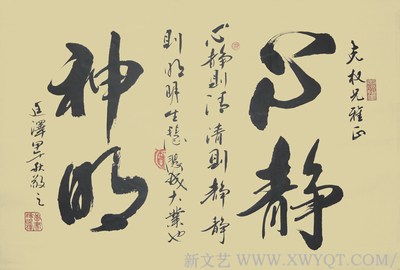 权兄雅正
心静
心静则清清则静静
则明明生慧成大业也
神明
泽
新文艺 WWW.XWYQT.COM